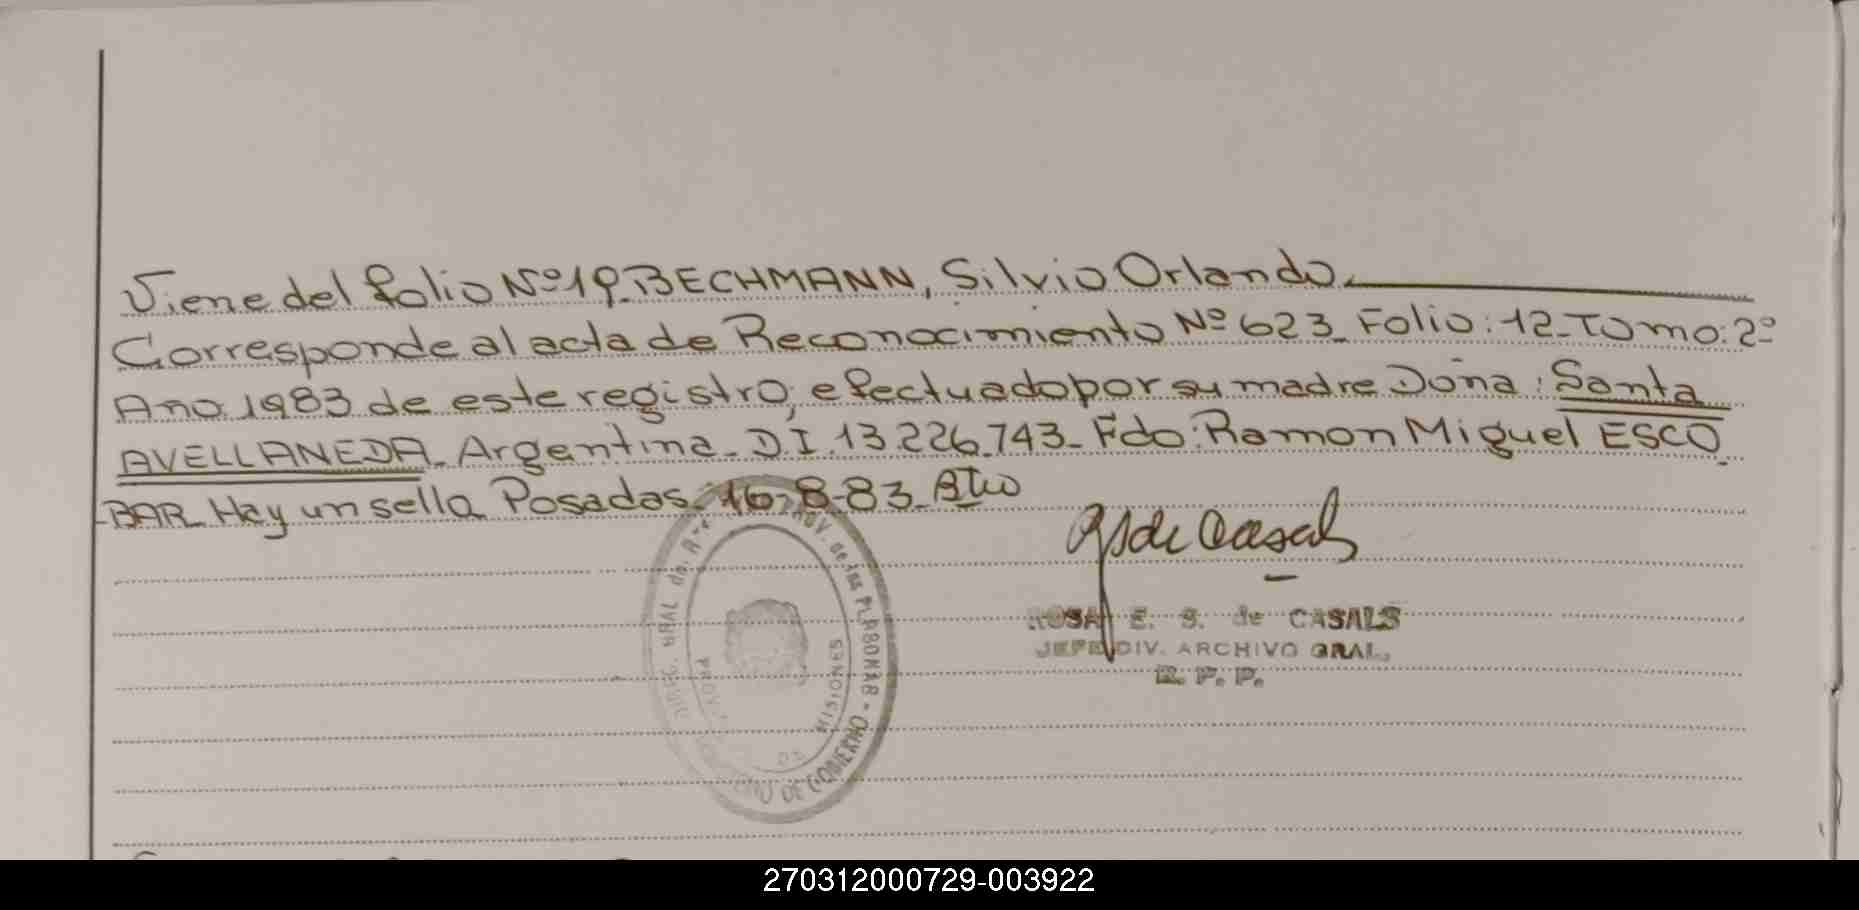 Viene del folio Nº 19. BECHMANN, Silvio Orlando.
Corresponde al acta de Reconocimiento Nº 623_ Folio: 12_ Tomo: 2º
Año 1983 de este registro; efectuado por su madre Doña: Santa
AVELLANEDA_ Argentina_ D.I. 13.226.743_ Fdo: Ramon Miguel ESCO_
_BAR_ Hay un sello Posadas_ 16-8-83_
de Casals
ROSA E. S. de CASALS
JEFE DIV. ARCHIVO GRAL.
R. P. P.
GRAL de de las PERSONAS - DE GOBIERNO
PROV. DE MISIONES
270312000729-003922